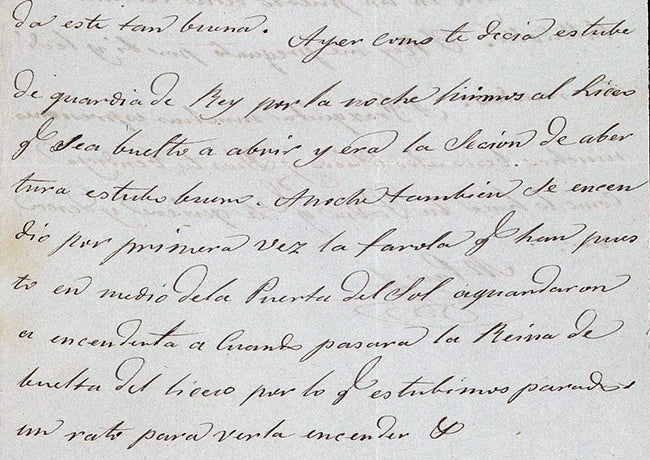 da esté tan buena. Ayer como te decia estube
de guardia de Rey por la noche fuimos al Liceo
q̃ sea buelto a abrir y era la Secion de aber
tura estubo bueno. Anoche también se encen
dio por primera vez la farola q̃ han pues
to en medio dela Puerta del Sol aguardaron
a encenderla a Cuando pasara la Reina de
buelta del liceo por lo q̃ estubimos parados
un rato para verla encender &